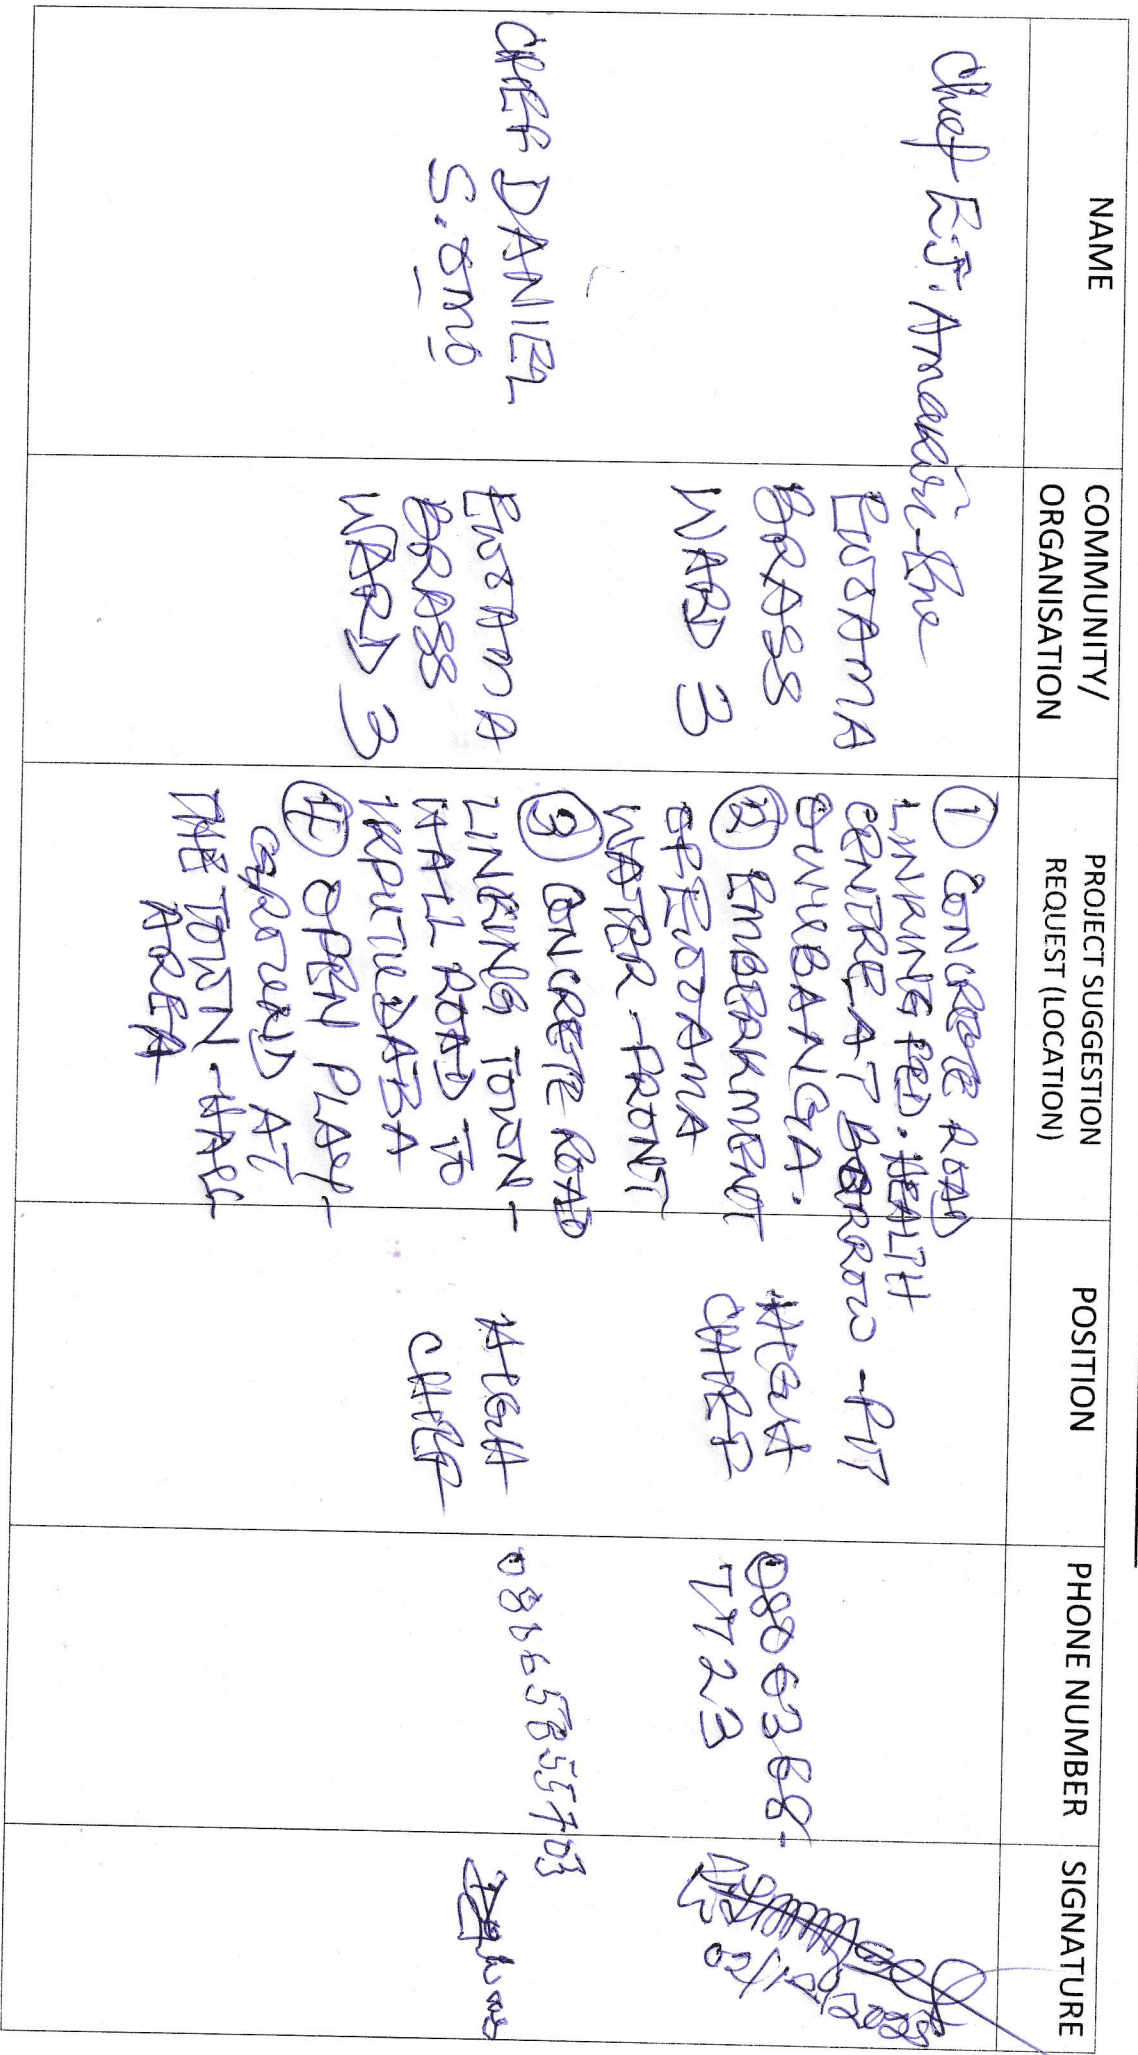 NAME
COMMUNITY/
ORGANISATION
PROJECT SUGGESTION
REQUEST (LOCATION)
POSITION
PHONE NUMBER
SIGNATURE
Chief E.J.
EWOAMA
BRASS
WARD 3
① CONCRETE ROAD
LINKING FED. HEALTH
CENTRE AT BORROW-PIT
② EMBERKMENT
OF EWOAMA
WATER-FRONT
HIGH
CHIEF
0806368-
7723
CHIEF DANIEL
S.
EWOAMA
BRASS
WARD 3
③ CONCRETE ROAD
LINKING TOWN-
HALL ROAD TO
④ OPEN PLAY-
GROUND AT
THE TOWN-HALL
AREA
HIGH
CHIEF